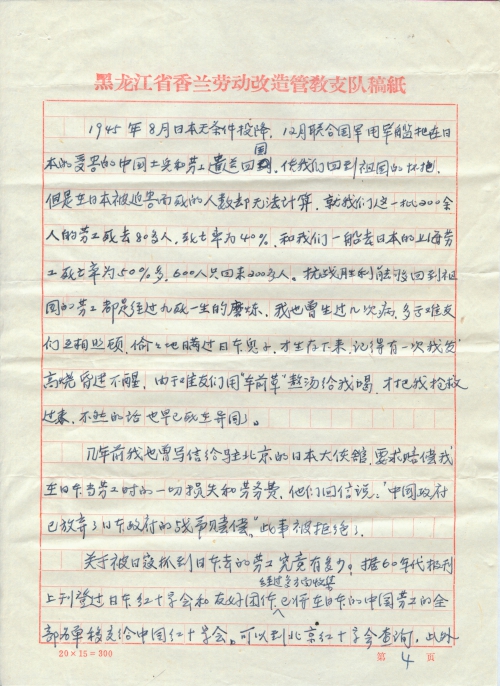 黑龙江省香兰劳动改造管教支队稿紙
1945年8月日本无条件投降，12月联合国军用军舰把在日
国
本的受害的中国士兵和劳工遣送回，使我们回到祖国的怀抱，
但是在日本被迫害而死的人数却无法计算，就我们这一批200余
人的劳工死去80多人，死亡率为40%，和我们一船去日本的上海劳
工死亡率为50%多，600人只回来200多人。抗战胜利能够回到祖
国的劳工都是经过九死一生的磨炼，我也曾生过几次病，多亏难友
们互相照顾，偷偷地瞒过日本鬼子，才生存下来，记得有一次我发
高烧昏迷不醒，由于难友们用"车前草"熬汤给我喝，才把我抢救
过来，不然的话也早已死在异国了。
几年前我也曾写信给驻北京的日本大使馆，要求赔偿我
在日本当劳工时的一切损失和劳务费，他们回信说："中国政府
已放弃了日本政府的战争赔偿"，此事被拒绝了。
关于被日寇抓到日本去的劳工究竟有多少，据60年代报刊
经过多方收集
上刊登过日本红十字会和友好团体，已将在日本的中国劳工的全
部名单移交给中国红十字会。可以到北京红十字会查询，此外
20×15=300
第 4 页